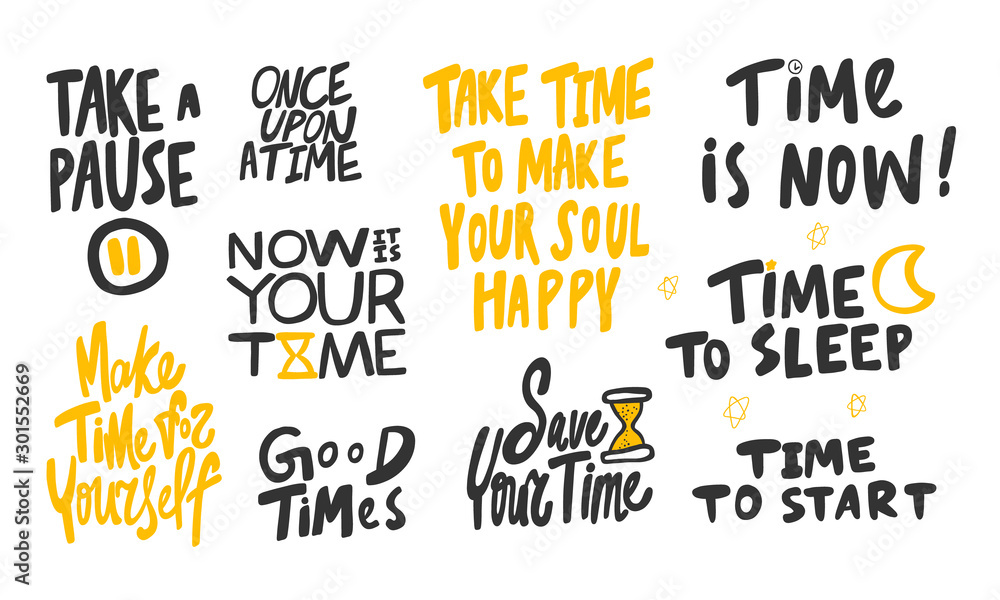 TAKE A
PAUSE
ONCE
UPON
A TIME
TAKE TIME
TO MAKE
YOUR SOUL
HAPPY
TiMe
iS NOW!
NOW IT IS
YOUR
TIME
TiME
TO SLEEP
Make
Time for
Yourself
GOOD
TiMes
Save
Your Time
TIME
TO START
Adobe Stock | #301552669